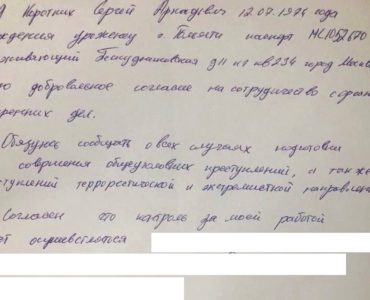 Я Коротких Сергей Аркадьевич 12.07.1974 года
ждения уроженец г. паспорт МС1052670
живающий д 11 кв 234 город Москва
ю добровольное согласие на сотрудничество с орган
тренних дел.
Обязуюсь сообщать о всех случаях подготовки
совершения общеуголовных преступлений, а также
ступлений террорестической и экстремистской направлен
Согласен что контроль за моей работой
ет осушевствлятося